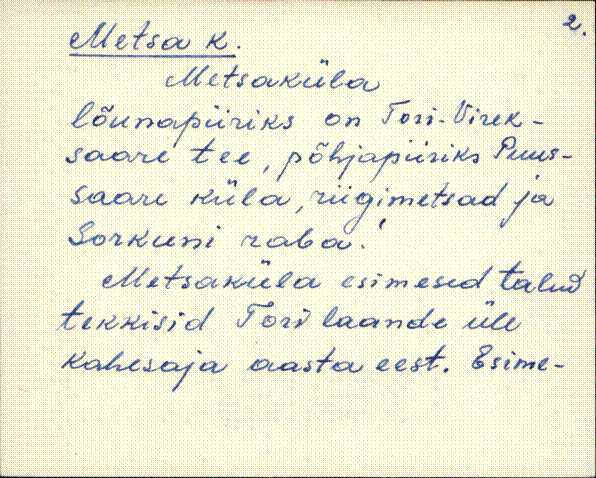 2.
Metsa k.
Metsaküla
lõunapiiriks on Tori-Virek-
saare tee, põhjapiiriks Puus-
saare küla, riigimetsad ja
Sorkuni raba.
Metsaküla esimesed talud
tekkisid Tori laande üle
kahesaja aasta eest. Esime-